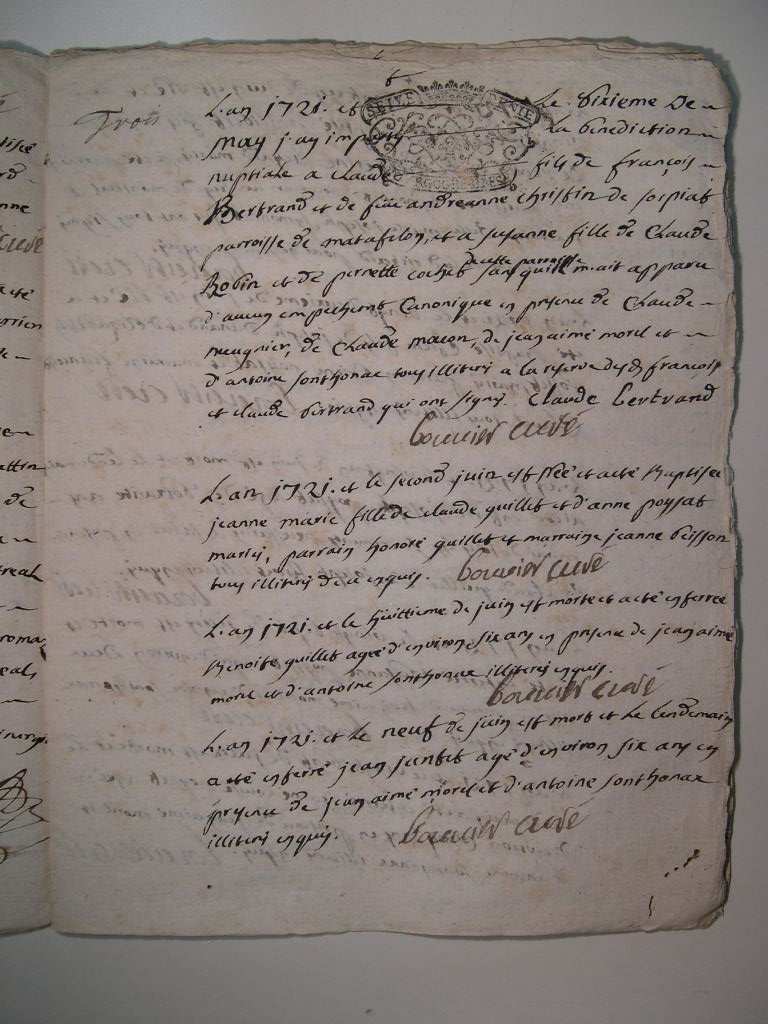 Trois
L'an 1721. et le sixieme de
may j'ay imparty la benediction
nuptiale a claude fils de françois
Bertrand et de feüe andreanne christin de sorpiat
parroisse de matafelon, et a susanne fille de Claude
Robin et de pernette cochet de cette parroisse sans quil m'ait apparu
d'aucun empechemt Canonique en presence de Claude
meugnier, de Claude macon, de jean aimé morel et
d'antoine sonthonax tous illiterés a la reserve desds françois
et claude bertrand qui ont signé. Claude bertrand
bouvier curé
L'an 1721. et le second juin est née et a eté Baptisée
jeanne marie fille de claude guillet et d'anne poysat
mariés, parrain honoré guillet et marraine jeanne Beisson
tous illiterés de ce enquis. bouvier curé
L'an 1721. et le huittieme de juin est morte et a eté enterrée
Benoite guillet agée d'environ six ans en presence de jean aimé
morel et d'antoine sonthonax illiterés enquis.
bouvier curé
L'an 1721. et le neuf de juin est mort et le lendemain
a eté enterré jean agé d'environ six ans en
presence de jean aimé morel et d'antoine sonthonax
illiterés enquis. bouvier curé